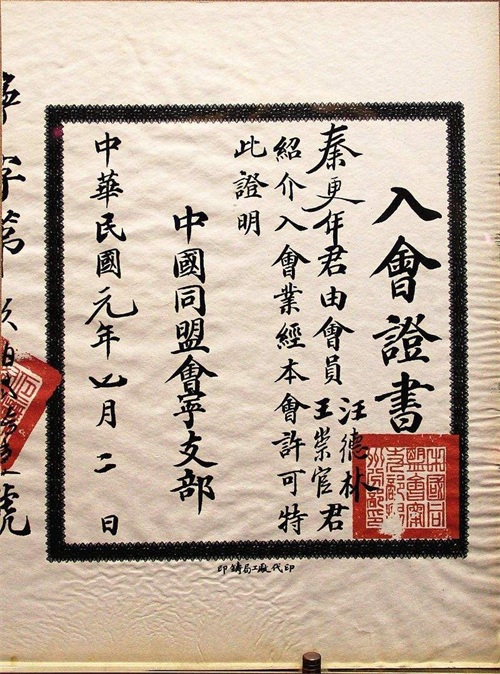 入會證書
秦更年君由會員汪德林
王崇官君
紹介入會業經本會許可特
此證明
中國同盟會寧支部
中華民國元年四月二日
印代廠工局鑄印
寧字第
號